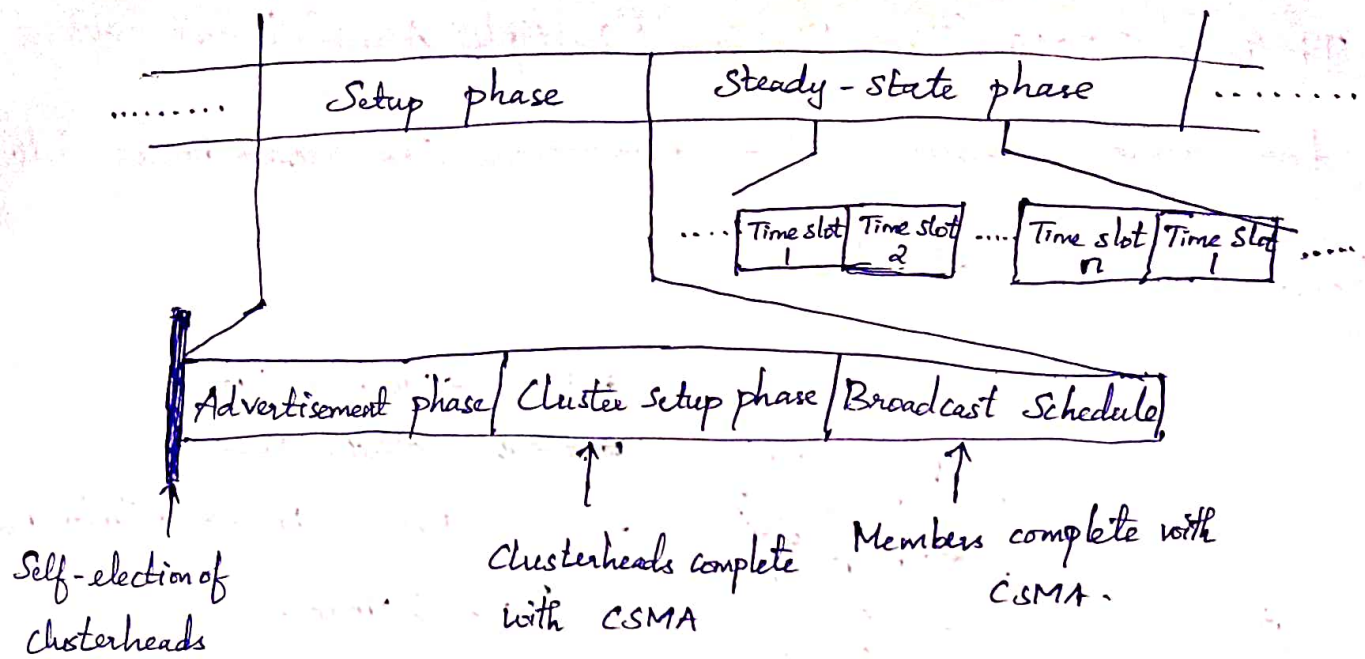 Setup phase
Steady-state phase
Time slot
1
Time slot
2
Time slot
n
Time Slot
1
Advertisement phase
Cluster setup phase
Broadcast Schedule
Self-election of
clusterheads
Clusterheads complete
with CSMA
Members complete with
CSMA.